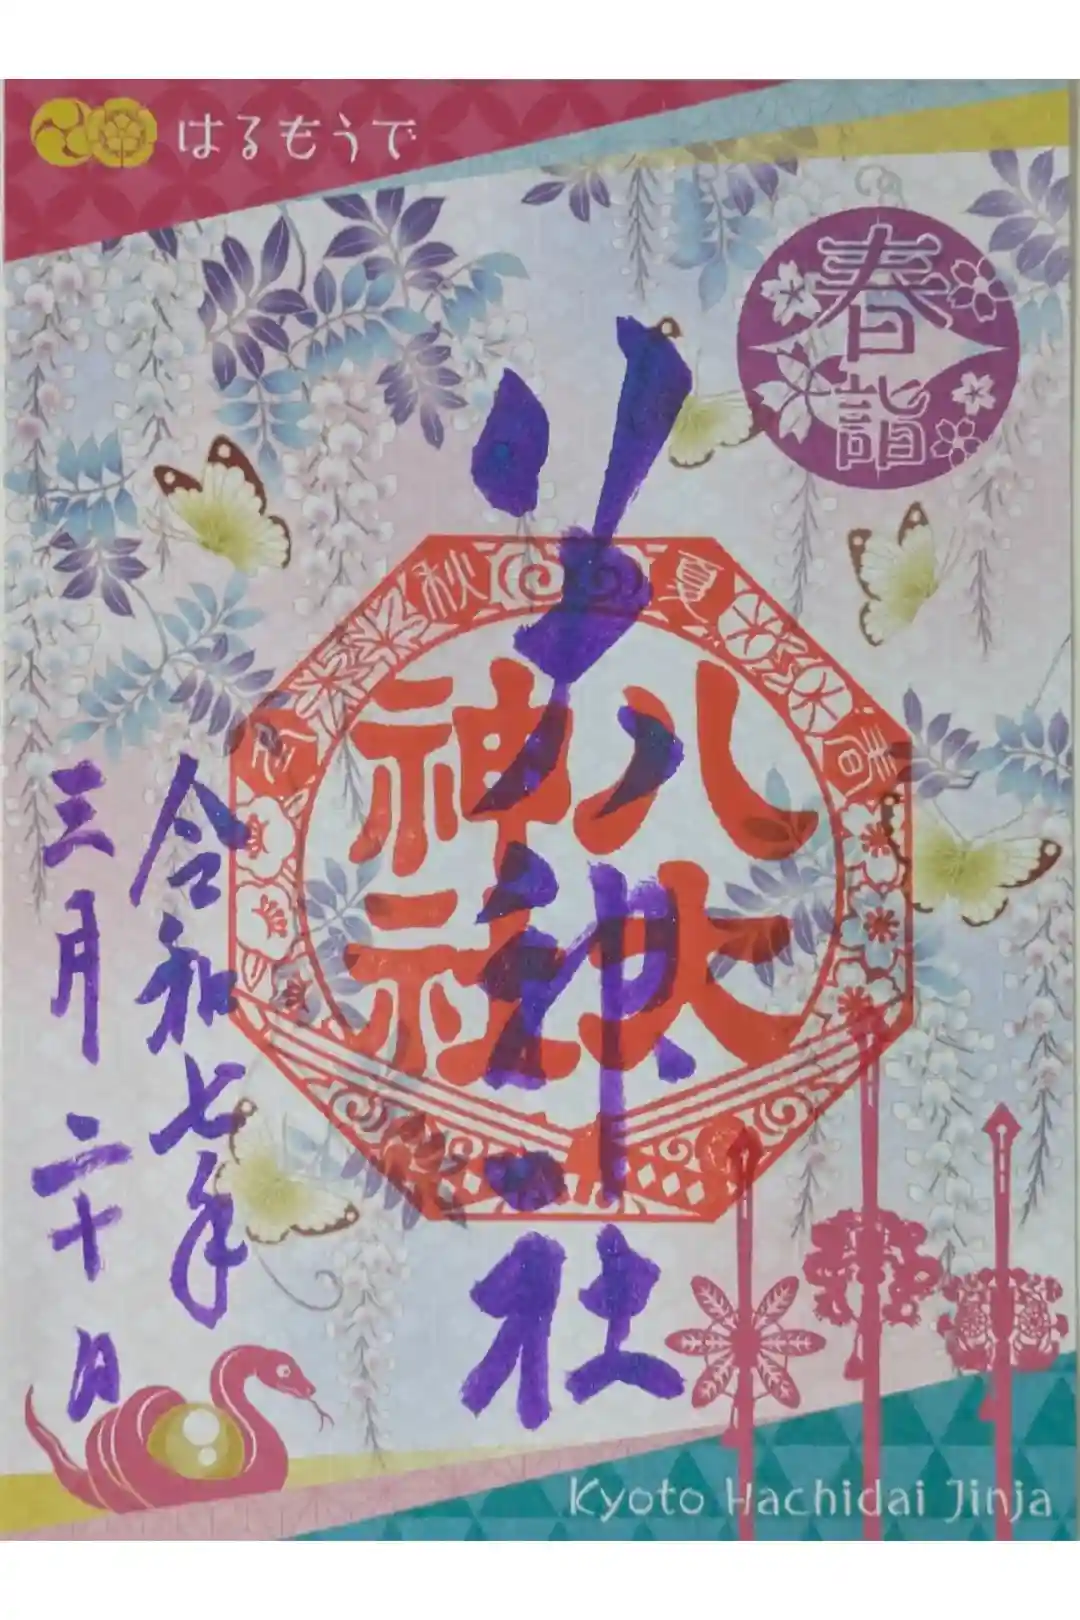 はるもうで
春詣
夏
秋
春
八大
神社
八大神社
令和七年
三月二十日
Kyoto Hachidai Jinja